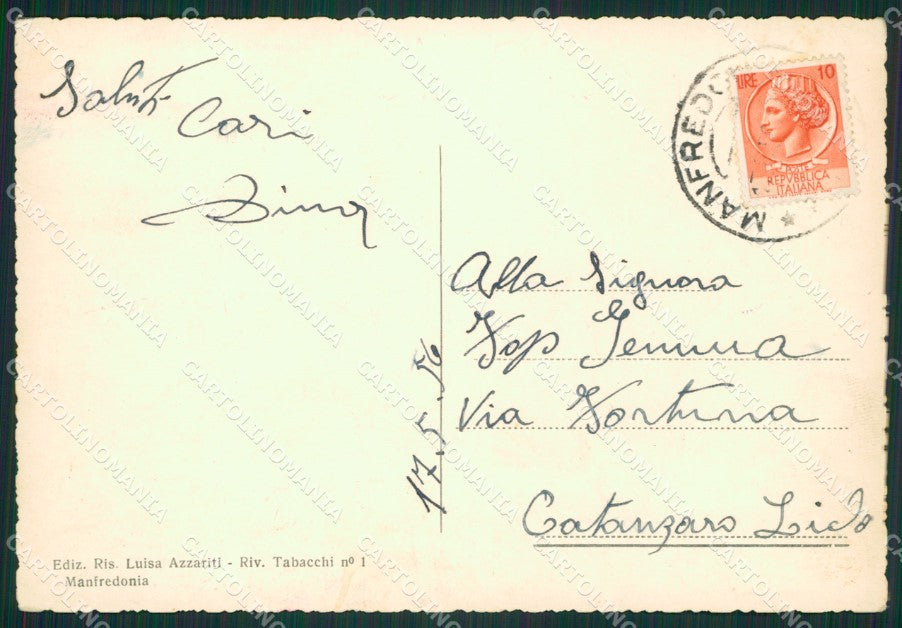 Saluti
Cari
LIRE 10
POSTE
REPVBBLICA
ITALIANA
MANFREDO
Alla Signora
Via Fortuna
Catanzaro Lido
17.5.56
Ediz. Ris. Luisa Azzariti - Riv. Tabacchi nº 1
Manfredonia
CARTOLINOMANIA